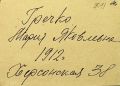 Гречко
Мария Яковлевна
1912г.
Херсонская 38